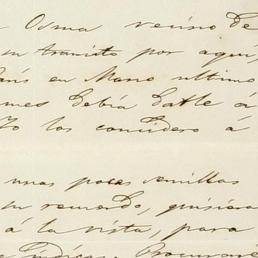 Osma vecino de
su transito por aqui,
Paris en Marzo ultimo
mes debia darle á
Yo los considero á
unas pocas semillas
su recuerdo, quisiera
á la vista, para